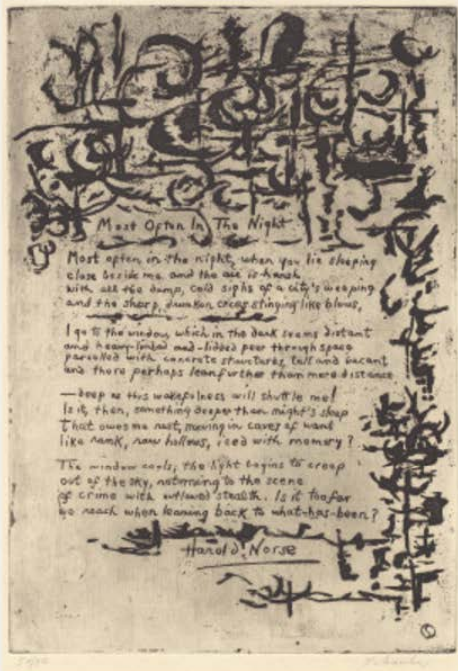 Most Often In The Night
Most often in the night, when you lie sleeping
close beside me and the air is harsh
with all the damp, cold sighs of a city's weeping
and the sharp, drunken cries stinging like blows,
I go to the window which in the dark seems distant
and heavy-limbed and -lidded peer through space
parcelled with concrete structures, tall and vacant
and there perhaps lean further than mere distance
—deep as this wakefulness will shuttle me!
Is it, then, something deeper than night's sleep
that owes me rest, moving in caves of want
like rank, raw hollows, iced with memory?
The window cools, the light begins to creep
out of the sky, returning to the scene
of crime with outlawed stealth. Is it too far
to reach when leaning back to what-has-been?
Harold Norse